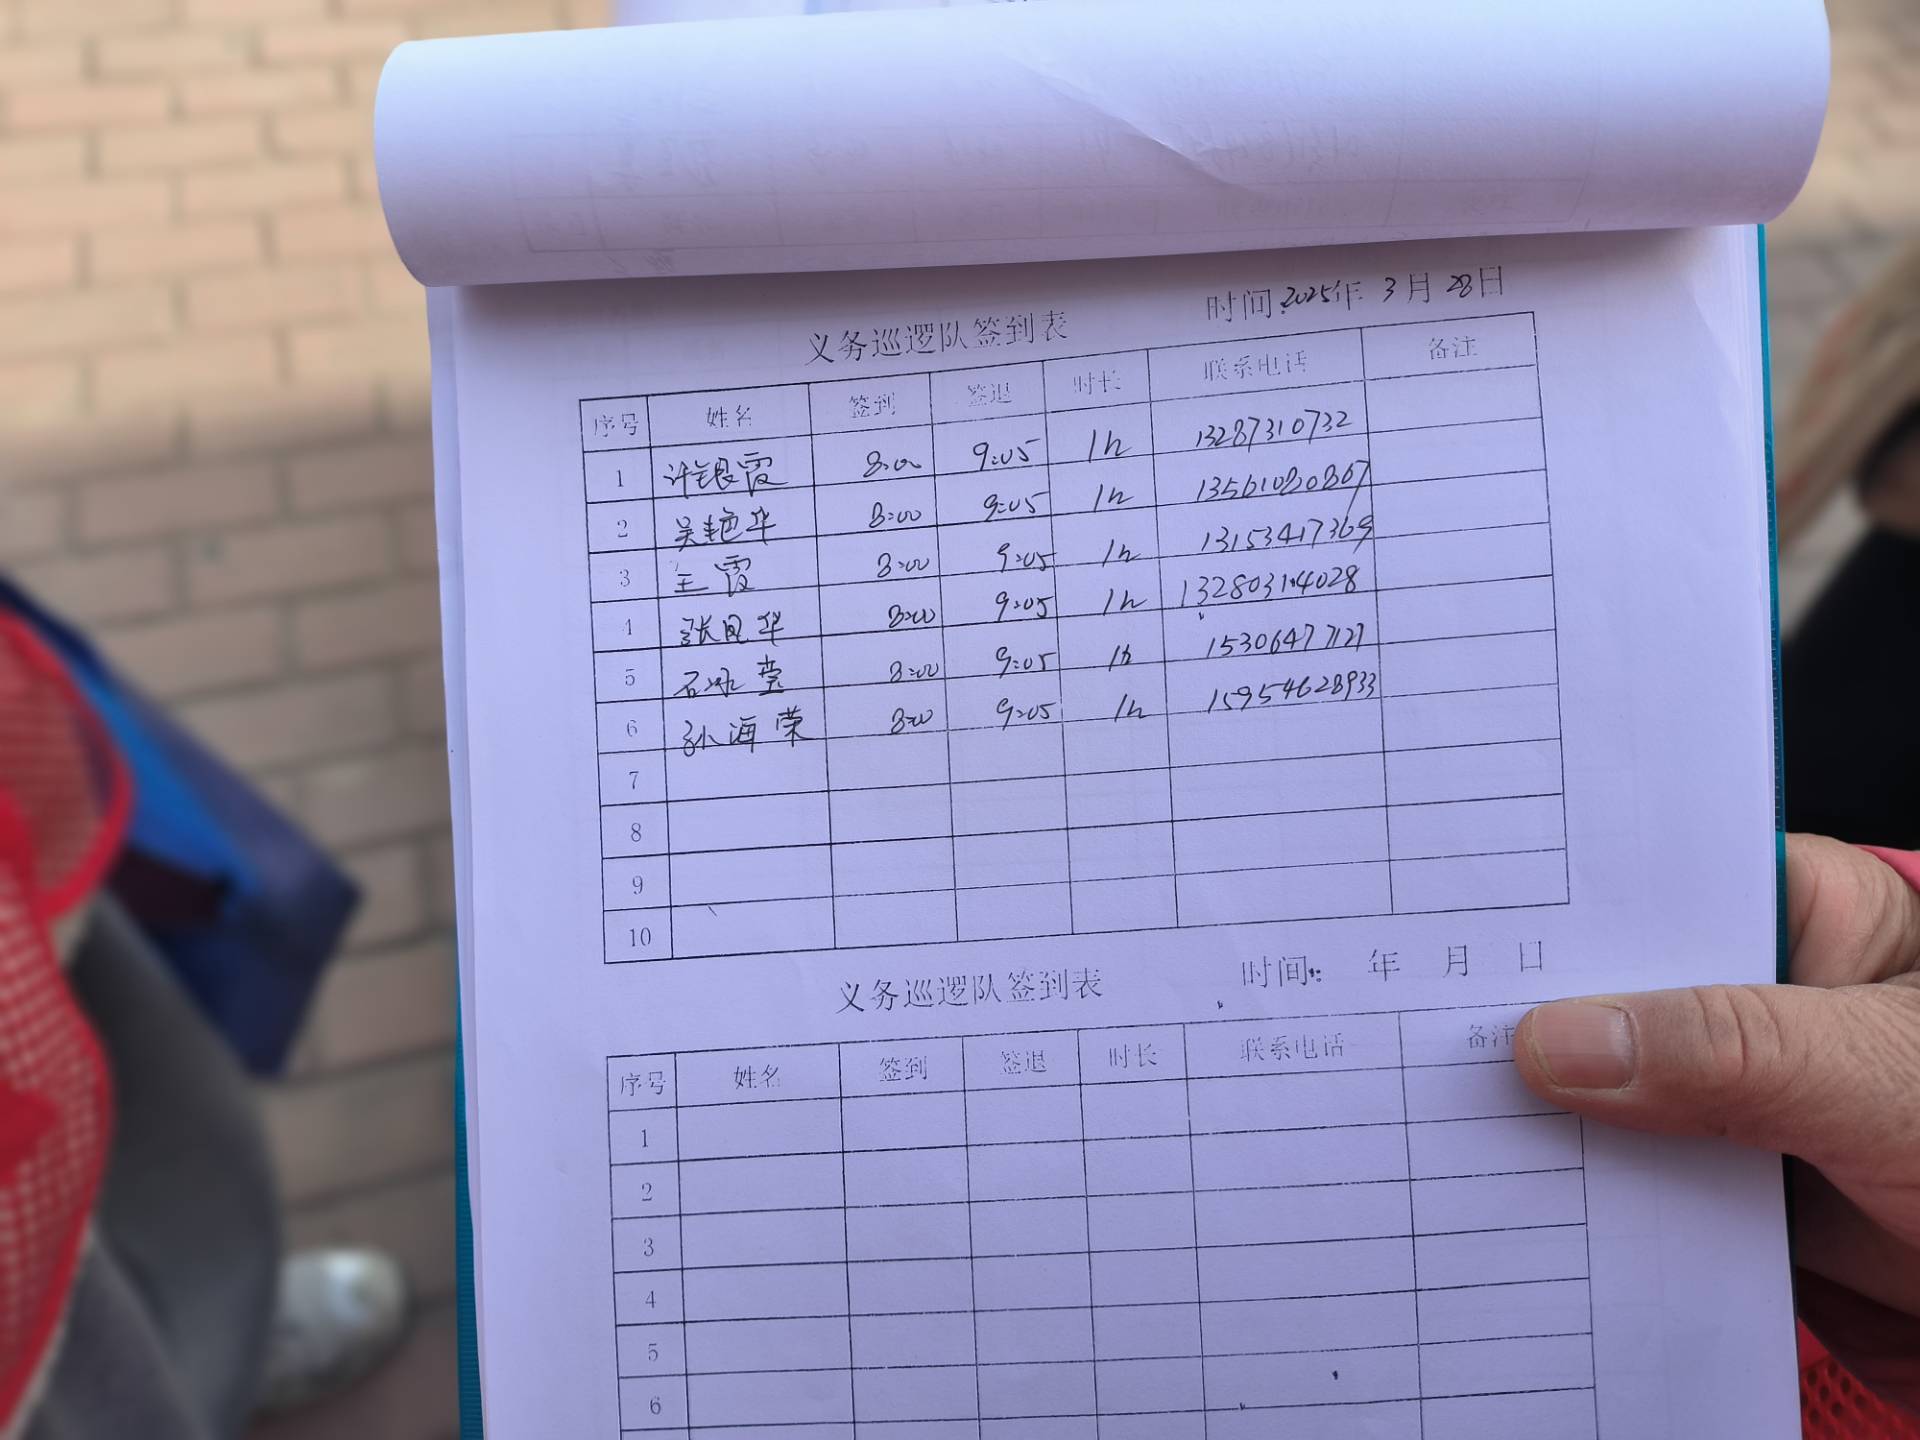 义务巡逻队签到表 时间:2025年 3月 28日
序号 姓名 签到 签退 时长 联系电话 备注
1 许银霞 8:00 9:05 1h 13287310732
2 吴艳华 8:00 9:05 1h 13561080867
3 王霞 8:00 9:05 1h 13153417369
4 张凤华 8:00 9:05 1h 13280314028
5 石冰莹 8:00 9:05 1h 15306477127
6 孙海荣 8:00 9:05 1h 15954628933
7
8
9
10
义务巡逻队签到表 时间: 年 月 日
序号 姓名 签到 签退 时长 联系电话 备注
1
2
3
4
5
6